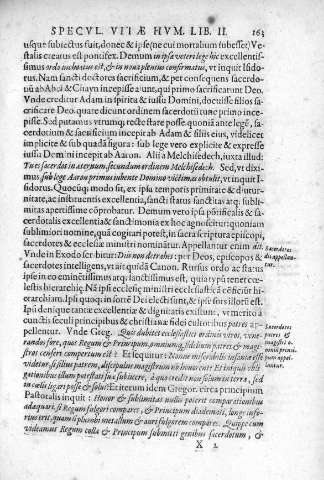 SPECVL. VITÆ HVM. LIB. II. 163
usque subiectus fuit, donec & ipse (ne cui mortalium subesset) Ve-
stalis creatus est pontifex. Demum in ipsa veteri lege hic excellentis-
simus ordo inchoatus est, & in noua plenius confirmatus, vt inquit Isido-
rus. Nam sancti doctores sacrificium, & per consequens sacerdo-
tiũ ab Abel & Chayn incepisse aiunt, qui primo sacrificarunt Deo.
Vnde creditur Adam in spiritu & iussu Domini, docuisse filios sa-
crificare Deo. quare dicunt ordinem sacerdotii tunc primo ince-
pisse. Sed putamus vtrumq; recte stare posse. quoniã ante legẽ, sa-
cerdotium & sacrificium incepit ab Adam & filiis eius, videlicet
implicite & sub quadã figura: sub lege vero explicite & expresse
iussu Domini incepit ab Aaron. Alii a Melchisedech, iuxta illud:
Tu es sacerdos in æternum, secundum ordinem Melchisedech. Sed, vt dixi-
mus, sub lege Aaron primus iubente Domino victimas obtulit, vt inquit Isi-
dorus. Quocũq; modo sit, ex ipsa temporis primitate & diutur-
nitate, ac instituentis excellentia, sancti status sanctitas atq; subli-
mitas apertissime cõprobatur. Demum vero ipsa põtificalis & sa-
cerdotalis excellentia & sanctimonia ex hoc agnoscitur: quoniam
sublimiori nomine, quã cogitari potest, in sacra scriptura episcopi,
sacerdotes & ecclesiæ ministri nominãtur. Appellantur enim dii.
Vnde in Exodo scribitur: Diis non detrahes: per Deos, episcopos &
sacerdotes intelligens, vt ait quidã Canon. Rursus ordo ac status
ipse in eo eminentissimus atq; sanctissimus est, quia typũ tenet cœ-
lestis hierarchiæ, Nã ipsi ecclesiæ ministri ecclesiasticã cõficiũt hi-
erarchiam. Ipsi quoq; in sortẽ Dei electi sunt, & ipsi sors illorũ est.
Ipsi denique tantæ excellentiæ & dignitatis existunt, vt merito a
cunctis seculi principibus & christianæ fidei cultoribus patres ap-
pellentur. Vnde Greg. Quis dubitet ecclesiastici ordinis viros, vene-
randos fore, quos Regum & Principum, omnium q; fidelium patres & magi-
stros censeri compertum est? Et sequitur: Nonne miserabilis insaniæ esse
videtur, si filius patrem, discipulus magistrum nõ honoret? Et iniquis obli-
gationibus illum potestati suæ subiicere, a quo credit non solum in terra, sed
in cœlis ligari posse & solui? Et iterum idem Gregor. circa principium
Pastoralis inquit: Honor & sublimitas nullis poterit comparationibus
adæquari. si Regum fulgori compares, & Principum diademati, longe infe-
rius erit, quam si plumbi metallum & auri fulgorem compares. Quippe cum
videamus Regum colla & Principum submitti genibus sacerdotum, &
X 2
Sacerdotes
dii appellan-
tur.
Sacerdotes
patres &
magistri